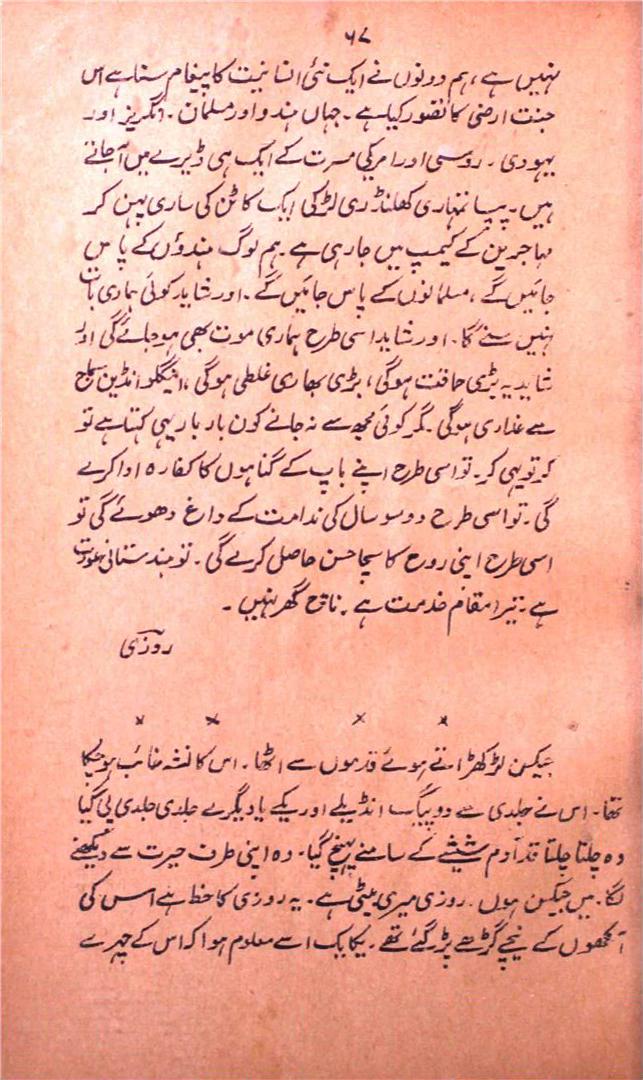 ۶۸
نہیں ہے، ہم دونوں نے ایک نئی انسانیت کا پیغام سنا ہے اس
جنت ارضی کا تصور کیا ہے۔ جہاں ہندو اور مسلمان۔ انگریز اور
یہودی۔ روسی اور امریکی مسرت کے ایک ہی ڈیرے میں آ جاتے
ہیں۔ پپا تمہاری کھلنڈری لڑکی ایک کاٹن کی ساری پہن کر
مہاجرین کے کیمپ میں جا رہی ہے۔ ہم لوگ ہندوؤں کے پاس
جائیں گے، مسلمانوں کے پاس جائیں گے۔ اور شاید کوئی ہماری بات
نہیں سنے گا۔ اور شاید اسی طرح ہماری موت بھی ہو جائے گی اور
شاید یہ بڑی حماقت ہو گی، بڑی بھاری غلطی ہو گی، اینگلو انڈین سماج
سے غداری ہو گی۔ مگر کوئی مجھ سے نہ جانے کون بار بار یہی کہتا ہے تو
کر تو یہی کر۔ تو اسی طرح اپنے باپ کے گناہوں کا کفارہ ادا کرے
گی۔ تو اسی طرح دو سو سال کی ندامت کے داغ دھوئے گی تو
اسی طرح اپنی روح کا سچا حسن حاصل کرے گی۔ تو ہندستانی عورت
ہے۔ تیرا مقام خدمت ہے۔ ناچ گھر نہیں۔
روزی
× × × ×
جیکسن لڑکھڑاتے ہوئے قدموں سے اٹھا۔ اس کا نشہ غائب ہو چکا
تھا۔ اس نے جلدی سے دو پیگ انڈیلے اور یکے بادیگرے جلدی جلدی پی گیا
وہ چلتا چلتا قد آدم شیشے کے سامنے پہنچ گیا۔ وہ اپنی طرف حیرت سے دیکھنے
لگا۔ میں جیکسن ہوں۔ روزی میری بیٹی ہے۔ یہ روزی کا خط ہے اس کی
آنکھوں کے نیچے گڑھے پڑ گئے تھے۔ یکایک اسے معلوم ہوا کہ اس کے چہرے